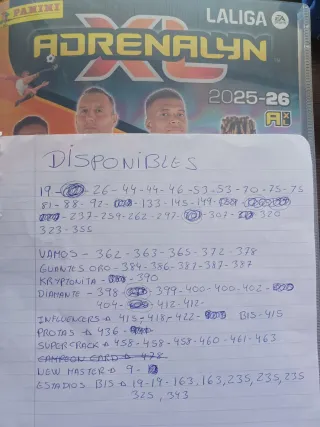 PANINI
LALIGA EA
ADRENALYN
XL
2025-26
DISPONIBLES
19 - 26 - 44 - 44 - 46 - 53 - 53 - 70 - 75 - 75
81 - 88 - 92 - 133 - 145 - 149
237 - 259 - 262 - 297 - 307 - 320
323 - 355
VAMOS - 362 - 363 - 365 - 372 - 378
GUANTES ORO - 384 - 386 - 387 - 387 - 387
KRYPTONITA - 390
DIAMANTE - 398 - 399 - 400 - 400 - 402
404 - 412 - 412 -
INFLUENCERS 415 - 418 - 422 - BIS - 415
PROTAS 436
SUPERCRACK 458 - 458 - 458 - 460 - 461 - 463
CAMPEON CARD 478
NEW MASTER 9 -
ESTADIOS BIS 19 - 19 - 163, 163, 235, 235, 235
325, 343